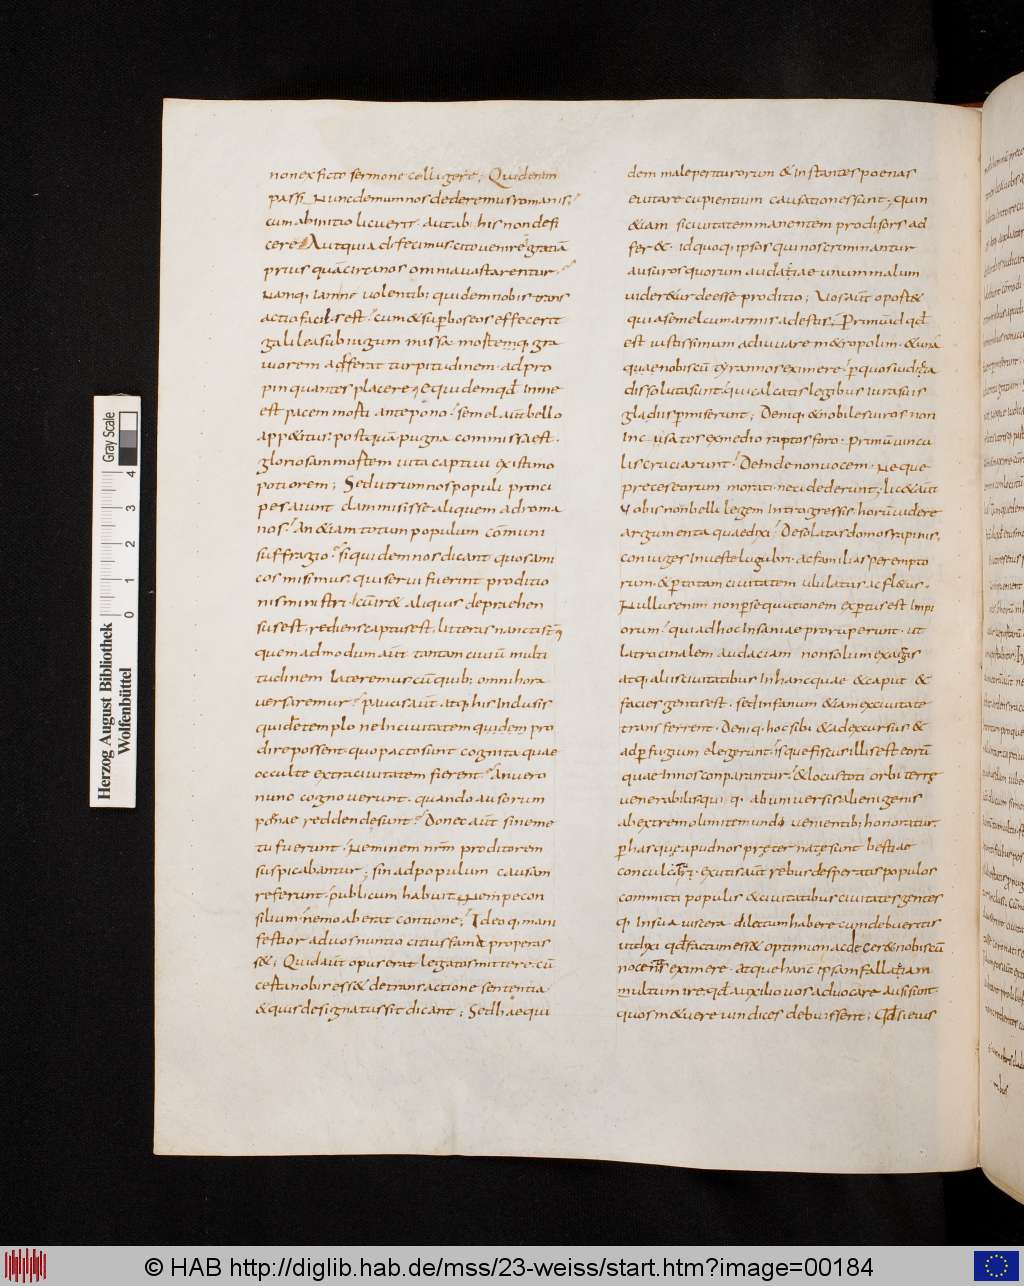 non ex ficto sermone colligere; Quid enim
passi. Nunc demum nos dederemus romanis?
cum ab initio licuerit. aut ab his non defi
cere? Aut quia difecimus. cito venire in gratiã
prius quã circa nos omnia vastarentur?
Namq; iam ne volentib; quidem nobis trans
actio facilis est. cum & sup̄bos eos effecerit
galilea sub iugum missa. mostemq; gra
viorem adferat turpitudinem. ad pro
pinquantes placere; Equidem qđ in me
est pacem morti antepono. semel aut̄ bello
app&itus. postquã pugna commissa est.
gloriosam mortem vita captivi existimo
potiorem; Sed utrum nos populi princi
pes aiunt clam misisse aliquem ad roma
nos? An &iam totum populum cõmuni
suffragio? si quidem nos dicant quos ami
cos misimus. qui servi fuerint proditio
nis ministri? cũ ir& aliquis depraehen
sus est. rediens captus est. litteras nancti sum;
quem admodum aut̄ tantam civiũ multi
tudinem lateremus cũ quib; omni hora
versaremur? paucis aut̄ atq; his inclusis
qui de templo ne in civitatem quidem pro
dire possent. quo pacto sunt cognita quae
occulte extra civitatem fierent? An vero
nunc cognoverunt. quando ausorum
poenae reddendae sunt? Donec aut̄ sine me
tu fuerunt. Neminem nrm̄ proditorem
suspicabantur; sin ad populum causam
referunt. publicum habuit nempe con
silium. nemo aberat contione; Ideoq; mani
festior ad vos nuntio citius fama properas
s&; Quid aut̄ opus erat legatos mittere. cũ
certa nobis ess& de transactione sententia.
& quis designatus sit dicant; Sed haec qui
dem male periturorum & instantes poenas
evitare cupientium causationes sunt. quin
&iam si civitatem manentem prodi sors ad
fer&. id quoq; ipsos qui nos criminantur
ausuros quorum audatiae unum malum
vider&ur deesse proditio; Vos aut̄ oport&
quia semel cum armis adestis. Primũ id qđ
est iustissimum adiuvare m&ropolim. & una
quae nobiscũ tyrannos eximere. p̱ quos iuditia
dissoluta sunt. qui calcatis legibus iura suis
gladiis p̱miserunt; Deniq; & nobiles viros non
inccusatos ex medio raptos foro. Primũ vincu
lis cruciarunt. Deinde non vocem. neque
preces eorum morati. neci dederunt; lic& aut̄
vobis non belli lege introgressis. horũ videre
argumenta quae dixi. Desolatas domos rapinis.
coniuges in veste lugubri. ac familias perempto
rum. & p̱ totam civitatem ululatus ac fl&us.
Nullus enim non p̱sequutionem exp̱tus est impi
orum. qui ad hoc insaniae proruperunt. ut
latrocinalem audaciam non solum ex agris
atq; aliis civitatibus in hanc quae & caput &
facies gentis est. sed in fanum &iam ex civitate
transferrent. Deniq; hoc sibi & ad excursus &
ad p̱fugium elegerunt. isque fiscus illis est eorũ
quae in nos comparantur. & locus toti orbi terrę
venerabilis qui q; ab universis alienigenis
ab extremo limite mundi venientib; honoratur.
p̱ has quę apud nos prẹter natẹ sunt bestiae
conculcatur. exutis aut̄ rebus desperatis populos
committi populis & civitatibus civitates gentes
q; in sua viscera. dilectum habere cum debueritis
ut dixi qđ factum ess& optimum ac decer& nobiscũ
nocentis eximere. atque hanc ipsam fallatiam
multum ire. qđ auxilio vos advocare ausi sunt.
quos m&uere vindices debuissent; Qđ si eius
Herzog August Bibliothek
Wolfenbüttel
Gray Scale
0 1 2 3 4
© HAB http://diglib.hab.de/mss/23-weiss/start.htm?image=00184